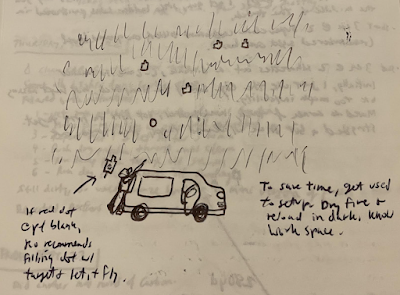 If red dot
@ pt blank,
recommends
filling dot w/
target + let 'r fly.
To save time, get used
to setup. Dry fire +
reload in dark, know
work space.